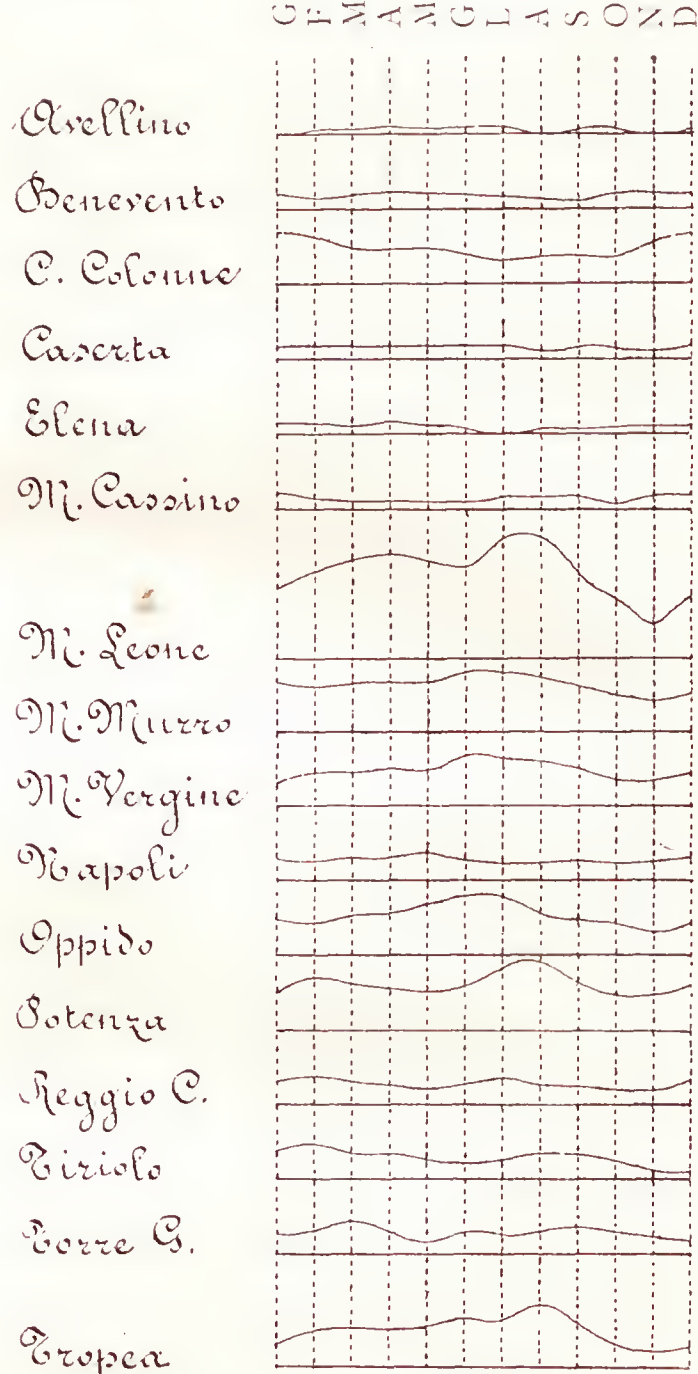 G F M A M G L A S O N D
Avellino
Benevento
C. Colonne
Caserta
Elena
M. Cassino
M. Leone
M. Murro
M. Vergine
Napoli
Oppido
Potenza
Reggio C.
Tiriolo
Torre G.
Tropea